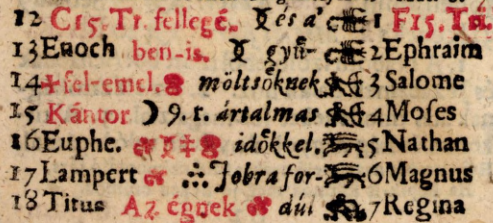 12 C 15. Tr. fellegē. és a' 1 F 15. Tri.
13 Enoch ben-is. gyü- 2 Ephraim
14 fel-emel. möltsöknek 3 Salome
15 Kántor ☽ 9. r. ártalmas 4 Moses
16 Euphe. idökkel. 5 Nathan
17 Lampert Jobra for- 6 Magnus
18 Titus Az égnek dúl 7 Regina